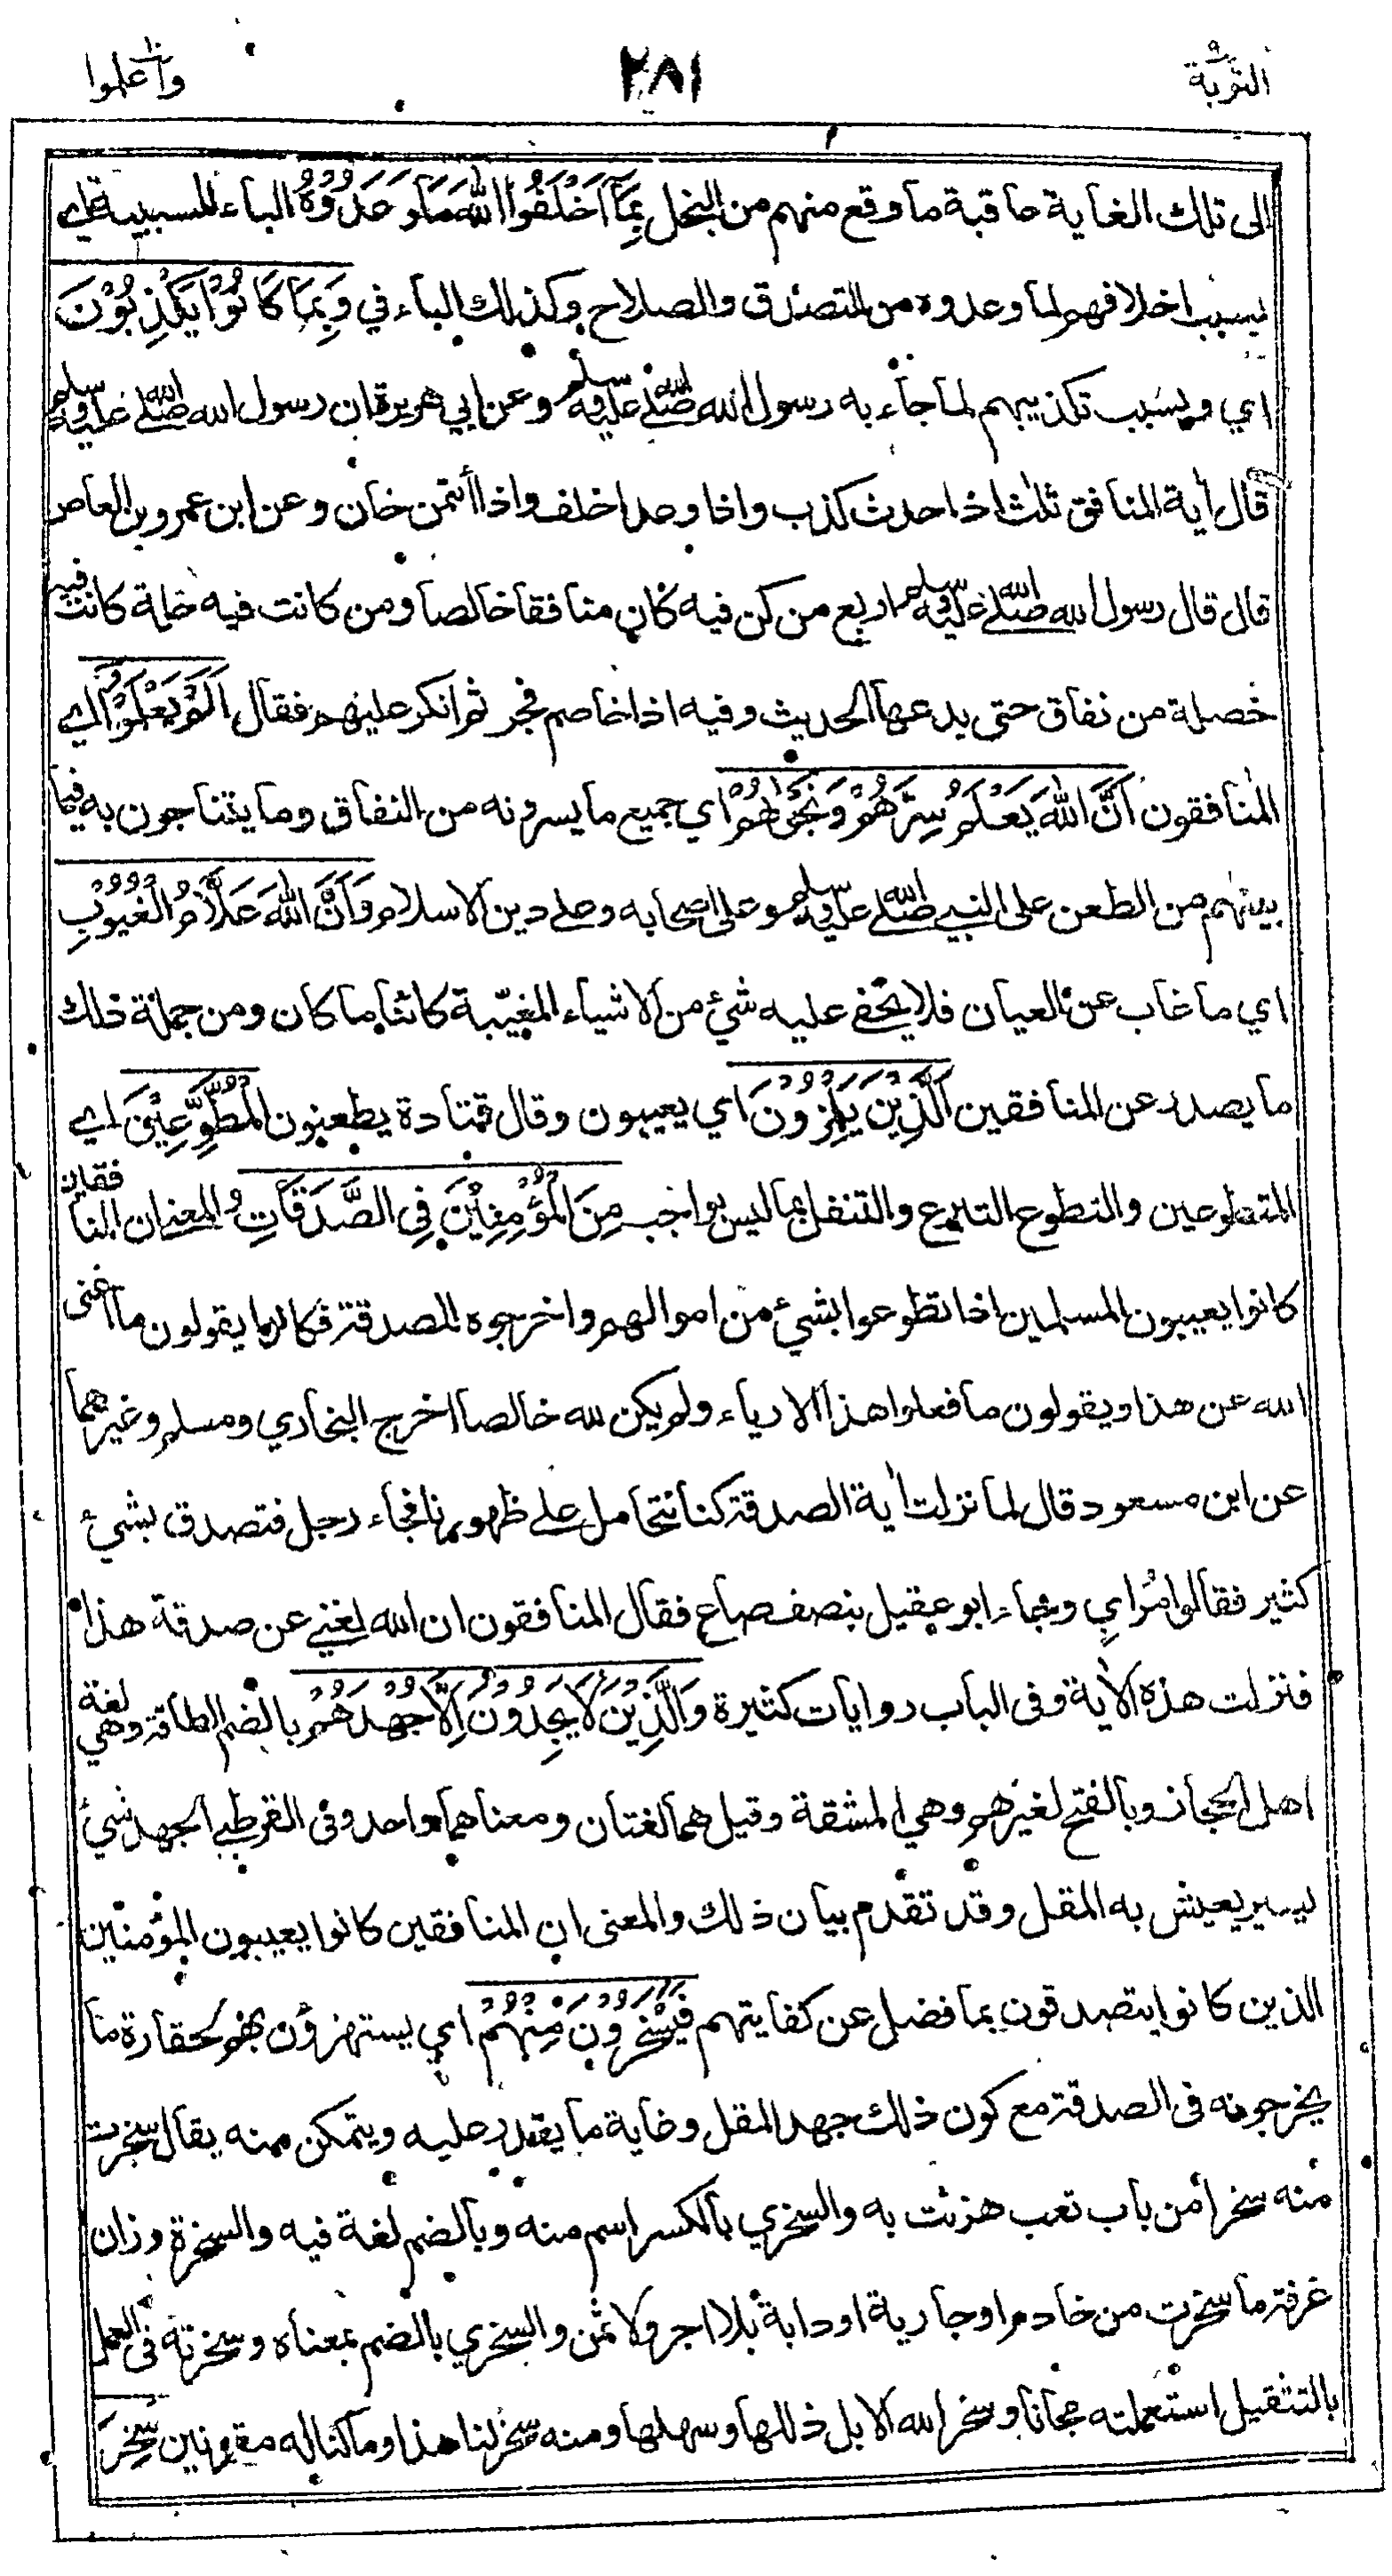 التوبة ٩
٢٨١
واعلموا ١٠
الى تلك الغاية عاقبة ما وقع منهم من البخل بِمَآ اَخْلَفُوا اللهَ مَا وَعَدُوْهُ الباء للسببية اي
بسبب اخلافهم لما وعدوه من التصدق والصلاح وكذلك الباء في وَبِمَا كَانُوْا يَكْذِبُوْنَ
اي وبسبب تكذيبهم لما جاء به رسول الله صلى الله عليه وسلم وعن ابي هريرة ان رسول الله صلى الله عليه وسلم
قال اٰية المنافق ثلث اذا حدث كذب واذا وعد اخلف واذا أتمن خان وعن ابن عمرو بن العاص
قال قال رسول الله صلى الله عليه وسلم اربع من كن فيه كان منافقا خالصا ومن كانت فيه خلة كانت فيه
خصلة من نفاق حتى يدعها الحديث وفيه اذا خاصم فجر ثم انكر عليهم فقال اَلَمْ يَعْلَمُوْا اي
المنافقون اَنَّ اللهَ يَعْلَمُ سِرَّهُمْ وَنَجْوٰهُمْ اي جميع ما يسرونه من النفاق وما يتناجون به فيما
بينهم من الطعن على النبي صلى الله عليه وسلم وعلى اصحابه وعلى دين الاسلام وَاَنَّ اللهَ عَلَّامُ الْغُيُوْبِ
اي ما غاب عن العيان فلا يخفى عليه شيء من الاشياء المغيّبة كائنا ما كان ومن جملة ذلك
ما يصدر عن المنافقين اَلَّذِيْنَ يَلْمِزُوْنَ اي يعيبون وقال قتادة يطعنون الْمُطَّوِّعِيْنَ اي
المتطوعين والتطوع التبرع والتنفل بما ليس بواجب مِنَ الْمُؤْمِنِيْنَ فِي الصَّدَقَاتِ والمعنى ان المنافقين
كانوا يعيبون المسلمين اذا تطوعوا بشيء من اموالهم واخرجوه للصدقة فكانوا يقولون ما اغنى
الله عن هذا ويقولون ما فعلوا هذا الا رياء ولم يكن لله خالصا اخرج البخاري ومسلم وغيرهما
عن ابن مسعود قال لما نزلت اٰية الصدقة كنا نتحامل على ظهورنا فجاء رجل فتصدق بشيء
كثير فقالوا مُرَاءٍ وجاء ابو عقيل بنصف صاع فقال المنافقون ان الله لغني عن صدقة هذا
فنزلت هذه الاٰية وفى الباب روايات كثيرة وَالَّذِيْنَ لَا يَجِدُوْنَ اِلَّا جُهْدَهُمْ بالضم الطاقة وهي لغة
اهل الحجاز وبالفتح لغيرهم وهي المشقة وقيل هما لغتان ومعناهما واحد وفى القرطبي الجهد شيء
يسير يعيش به المقل وقد تقدم بيان ذلك والمعنى ان المنافقين كانوا يعيبون المؤمنين
الذين كانوا يتصدقون بما فضل عن كفايتهم فَيَسْخَرُوْنَ مِنْهُمْ اي يستهزؤن بهم لحقارة ما
يخرجونه فى الصدقة مع كون ذلك جهد المقل وغاية ما يقدر عليه ويتمكن منه يقال سخرت
منه سخرا من باب تعب هزئت به والسخري بالكسر اسم منه وبالضم لغة فيه والسخرة وزان
غرفة ما سخرت من خادم او جارية او دابة بلا اجر ولا ثمن والسخري بالضم بمعناه وسخرته فى العمل
بالتثقيل استعملته مجانا وسخر الله الابل ذللها وسهلها ومنه سخر لنا هذا وما كنا له مقرنين سَخِرَ